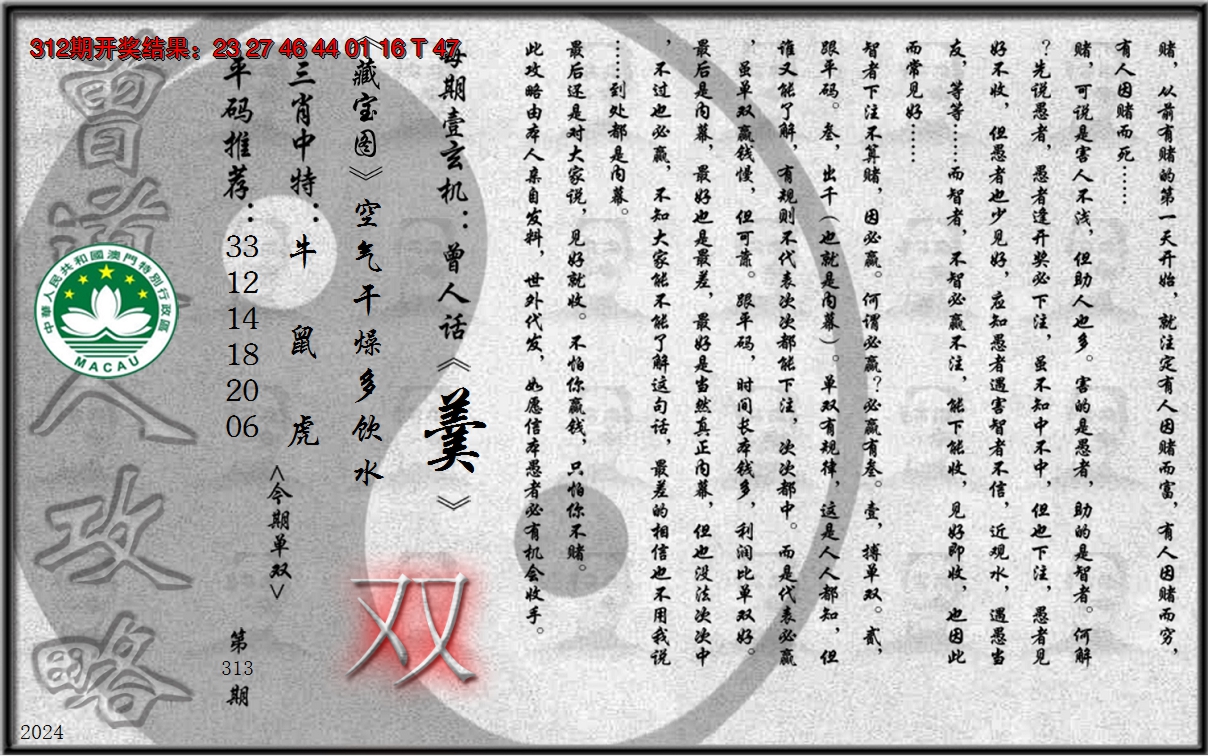 312期开奖结果：23 27 46 44 01 16 T 47
赌，从前有赌的第一天开始，就注定有人因赌而富，有人因赌而穷，
有人因赌而死……
赌，可说是害人不浅，但助人也多。害的是愚者，助的是智者。何解
？先说愚者，愚者逢开奖必下注，虽不知中不中，但也下注，愚者见
好不收，但愚者也少见好，应知愚者遇害智者不信，近观水，遇愚当
友，等等……而智者，不智必赢不注，能下能收，见好即收，也因此
而常见好……
智者下注不算赌，因必赢。何谓必赢？必赢有叁。壹，搏单双。贰，
跟平码。叁，出千（也就是内幕）。单双有规律，这是人人都知，但
谁又能了解，有规则不代表次次都能下注，次次都中。而是代表必赢
，虽单双赢钱慢，但可靠。跟平码，时间长本钱多，利润比单双好。
最后是内幕，最好也是最差，最好是当然真正内幕，但也没法次次中
，不过也必赢，不知大家能不能了解这句话，最差的相信也不用我说
……到处都是内幕。
最后还是对大家说，见好就收。不怕你赢钱，只怕你不赌。
此攻略由本人亲自发料，世外代发，如愿信本愚者必有机会收手。
每期壹玄机：曾人话《羹》
《藏宝图》空气干燥多饮水
双
三肖中特：牛 鼠 虎
<今期单双>
平码推荐：33 12 14 18 20 06
第313期
曾道人攻略
中華人民共和國澳門特別行政區
MACAU
2024